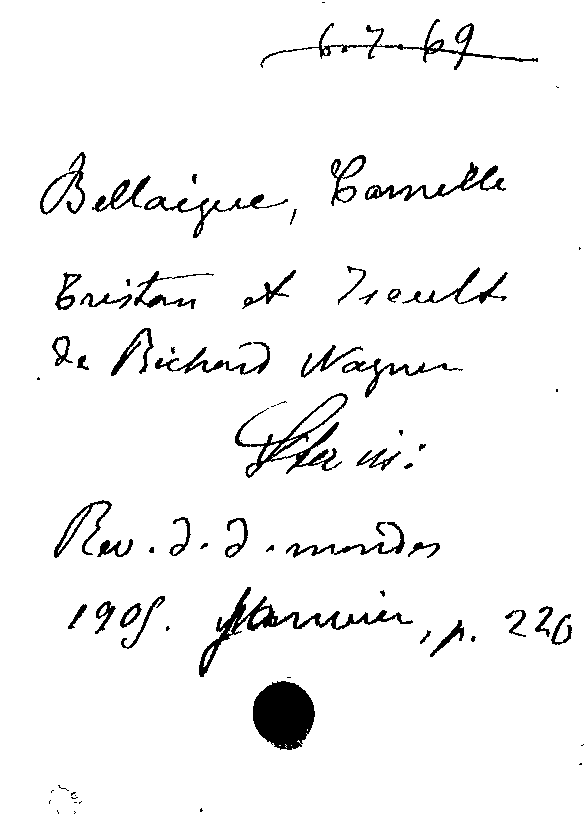 6.7.69
Bellaigue, Camille
Tristan et Iseult
de Richard Wagner
in:
Rev. d. d. mondes
1905. Janvier, p. 220